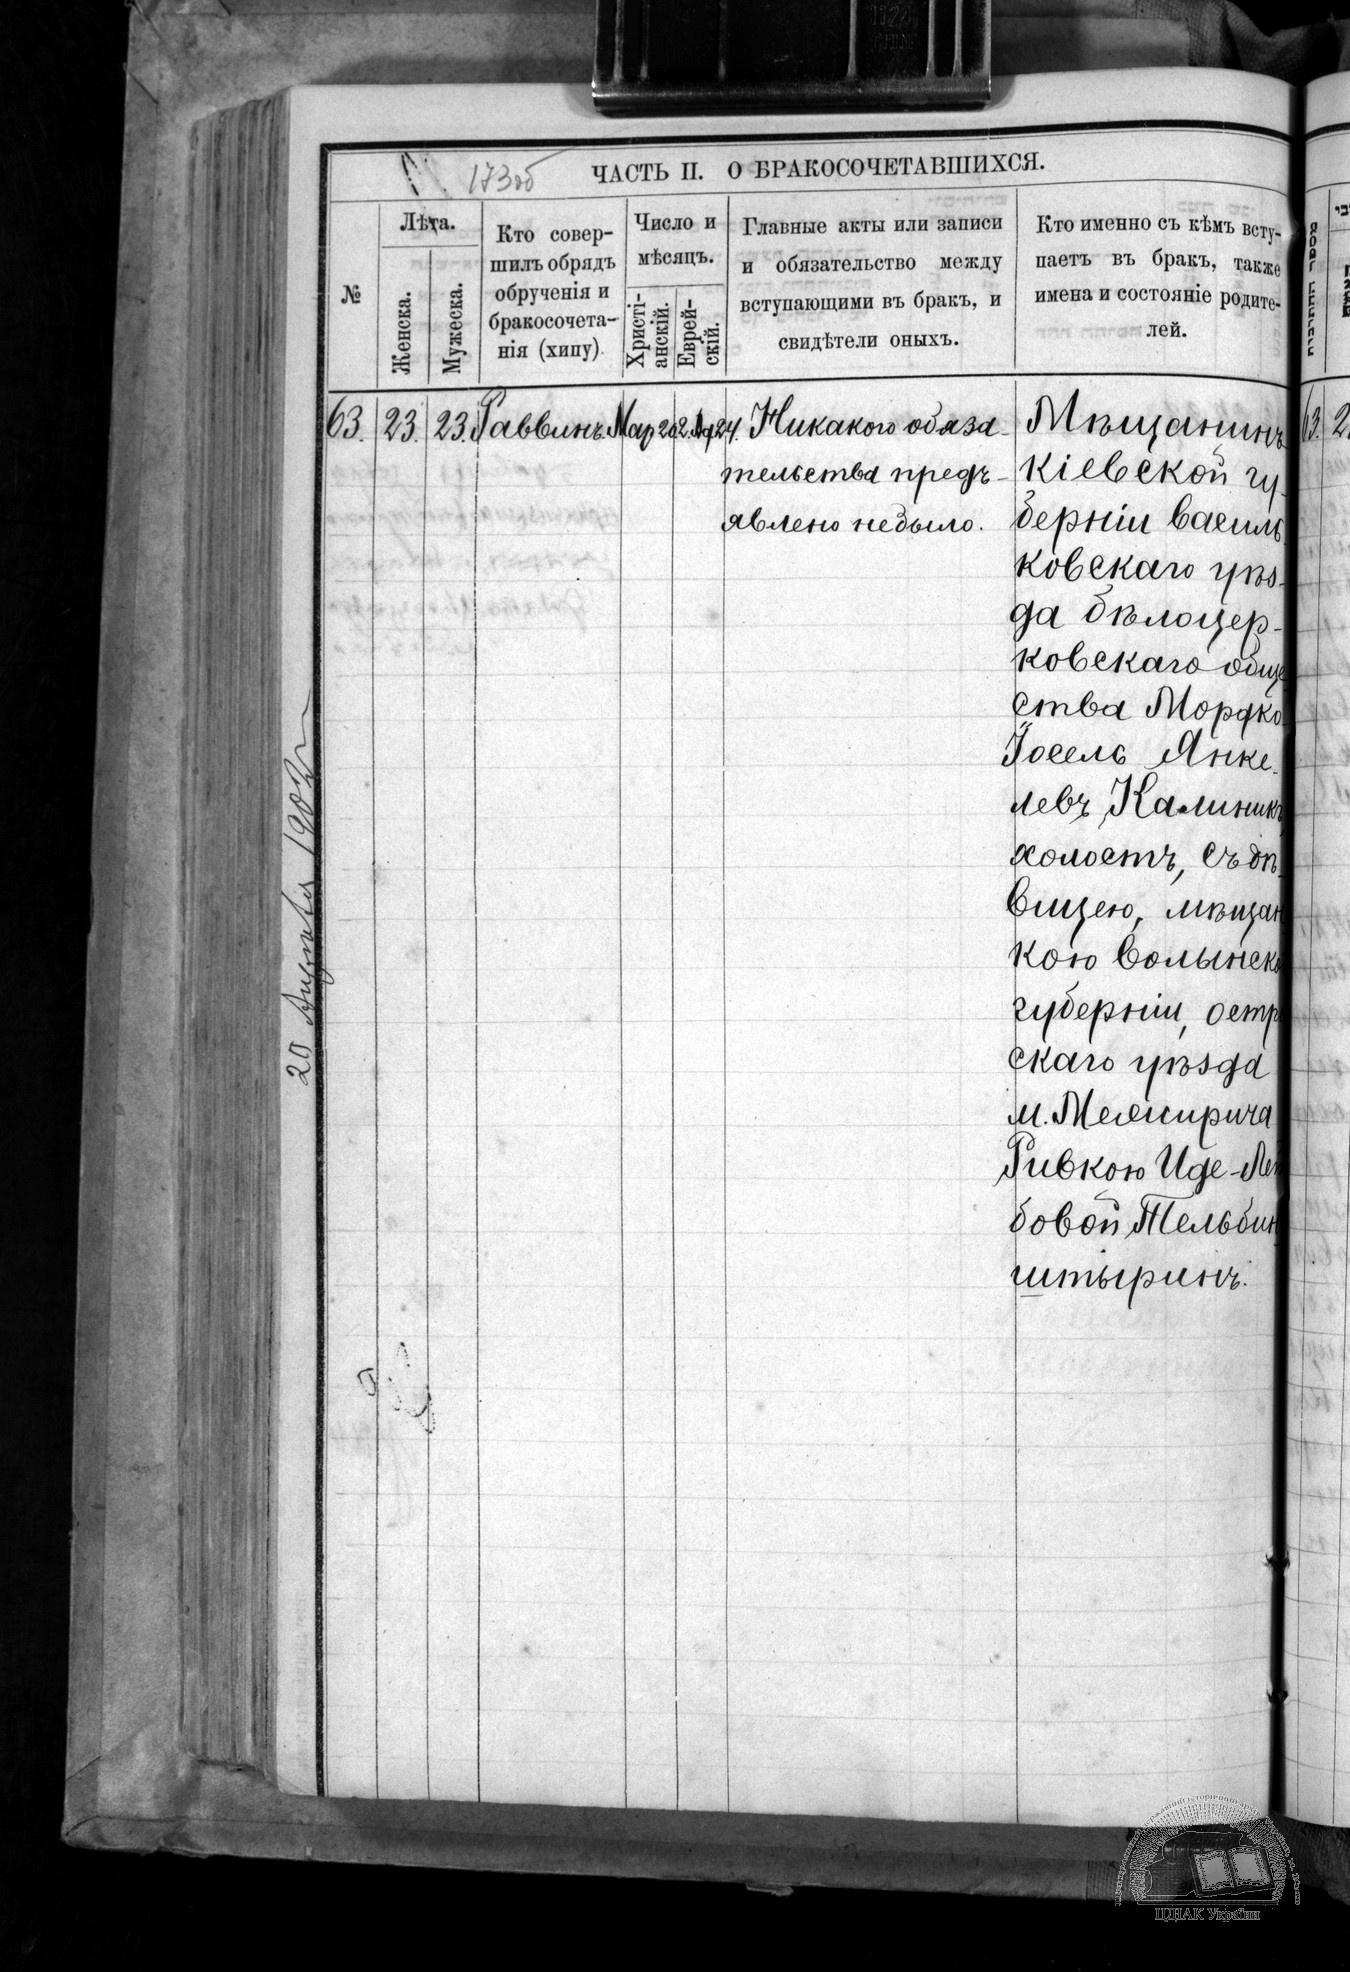 173об
ЧАСТЬ II. О БРАКОСОЧЕТАВШИХСЯ.
№
Лѣта.
Женска.
Мужеска.
Кто совер-
шилъ обрядъ
обрученія и
бракосочета-
нія (хипу)
Число и
мѣсяцъ.
Христі-
анскій.
Еврей-
скій.
Главные акты или записи
и обязательство между
вступающими въ брак, и
свидѣтели оныхъ.
Кто именно съ кѣмъ всту-
паетъ въ бракъ, также
имена и состояніе родите-
лей.
63. 23. 23. Раввинъ Мар 20
Никакого обяза-
тельства предъ-
явлено небыло.
Мѣщанинъ
кіевской гу-
берніи василь
ковскаго уѣз-
да бѣлоцер-
ковскаго обще
ства Мордко
Іосель Янке-
левъ Калиникъ
холостъ, съ дѣ-
вицею, мѣщан
кою волынско
губерніи, остр
скаго уѣзда
м. Межирича
Ривкою Иде-Лей
бовой Тельбин
штыринъ.
20 Августа 1902 г
ЦДІАК України